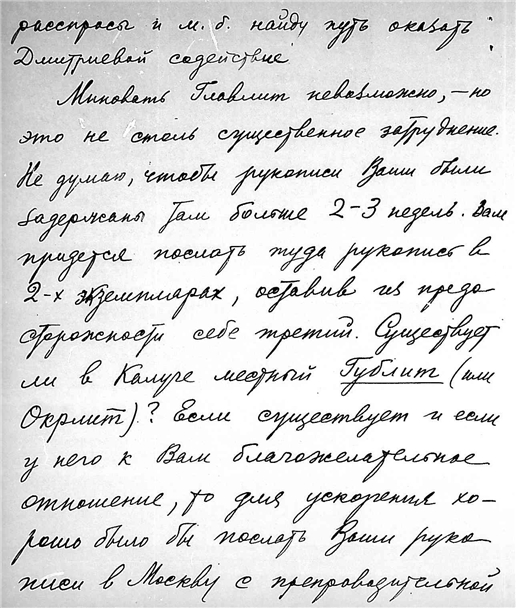 расспросы и м. б. найду путь оказать
Дмитриевой содействие
Миновать Главлит невозможно, — но
это не столь существенное затруднение.
Не думаю, чтобы рукописи Ваши были
задержаны там больше 2-3 недель. Вам
придется послать туда рукопись в
2-х экземплярах, оставив из предо
сторожности себе третий. Существует
ли в Калуге местный Гублит (или
Окрлит)? Если существует и если
у него к Вам благожелательное
отношение, то для ускорения хо-
рошо было бы послать Ваши руко
писи в Москву с препроводительной